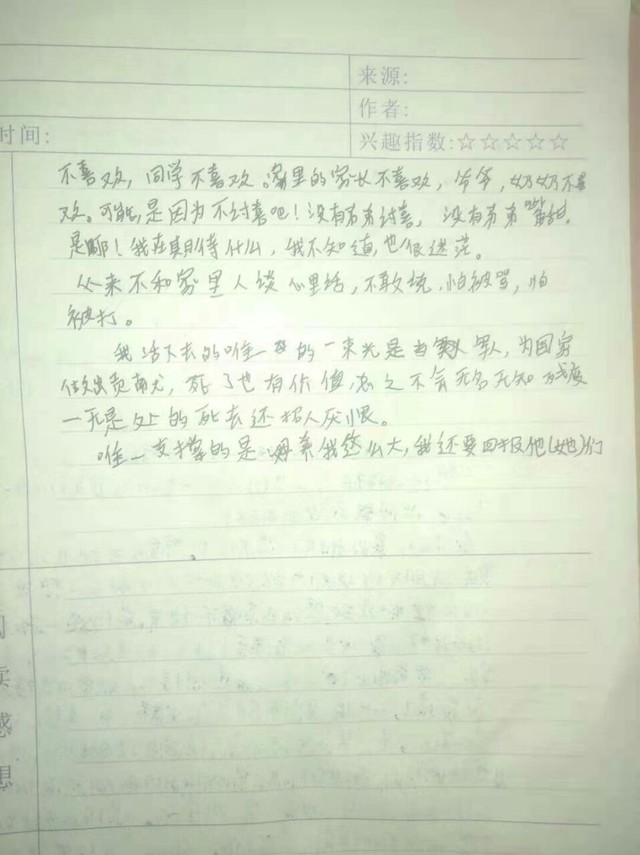 来源:
作者:
时间:
兴趣指数:☆☆☆☆☆
不喜欢,同学不喜欢。家里的家长不喜欢,爷爷,奶奶不喜
欢。可能是因为不讨喜吧!没有弟弟讨喜,没有弟弟嘴甜,
是啊!我在期待什么,我不知道,也很迷茫。
从来不和家里人谈心里话,不敢说,怕被骂,怕
被打。
我活下去的唯一的一束光是当军人,为国家
做出贡献,死了也有价值,总之不会无名无知
一无是处的死去还招人厌恨。
唯一支撑的是母亲我这么大,我还要回报他(她)们
感
想